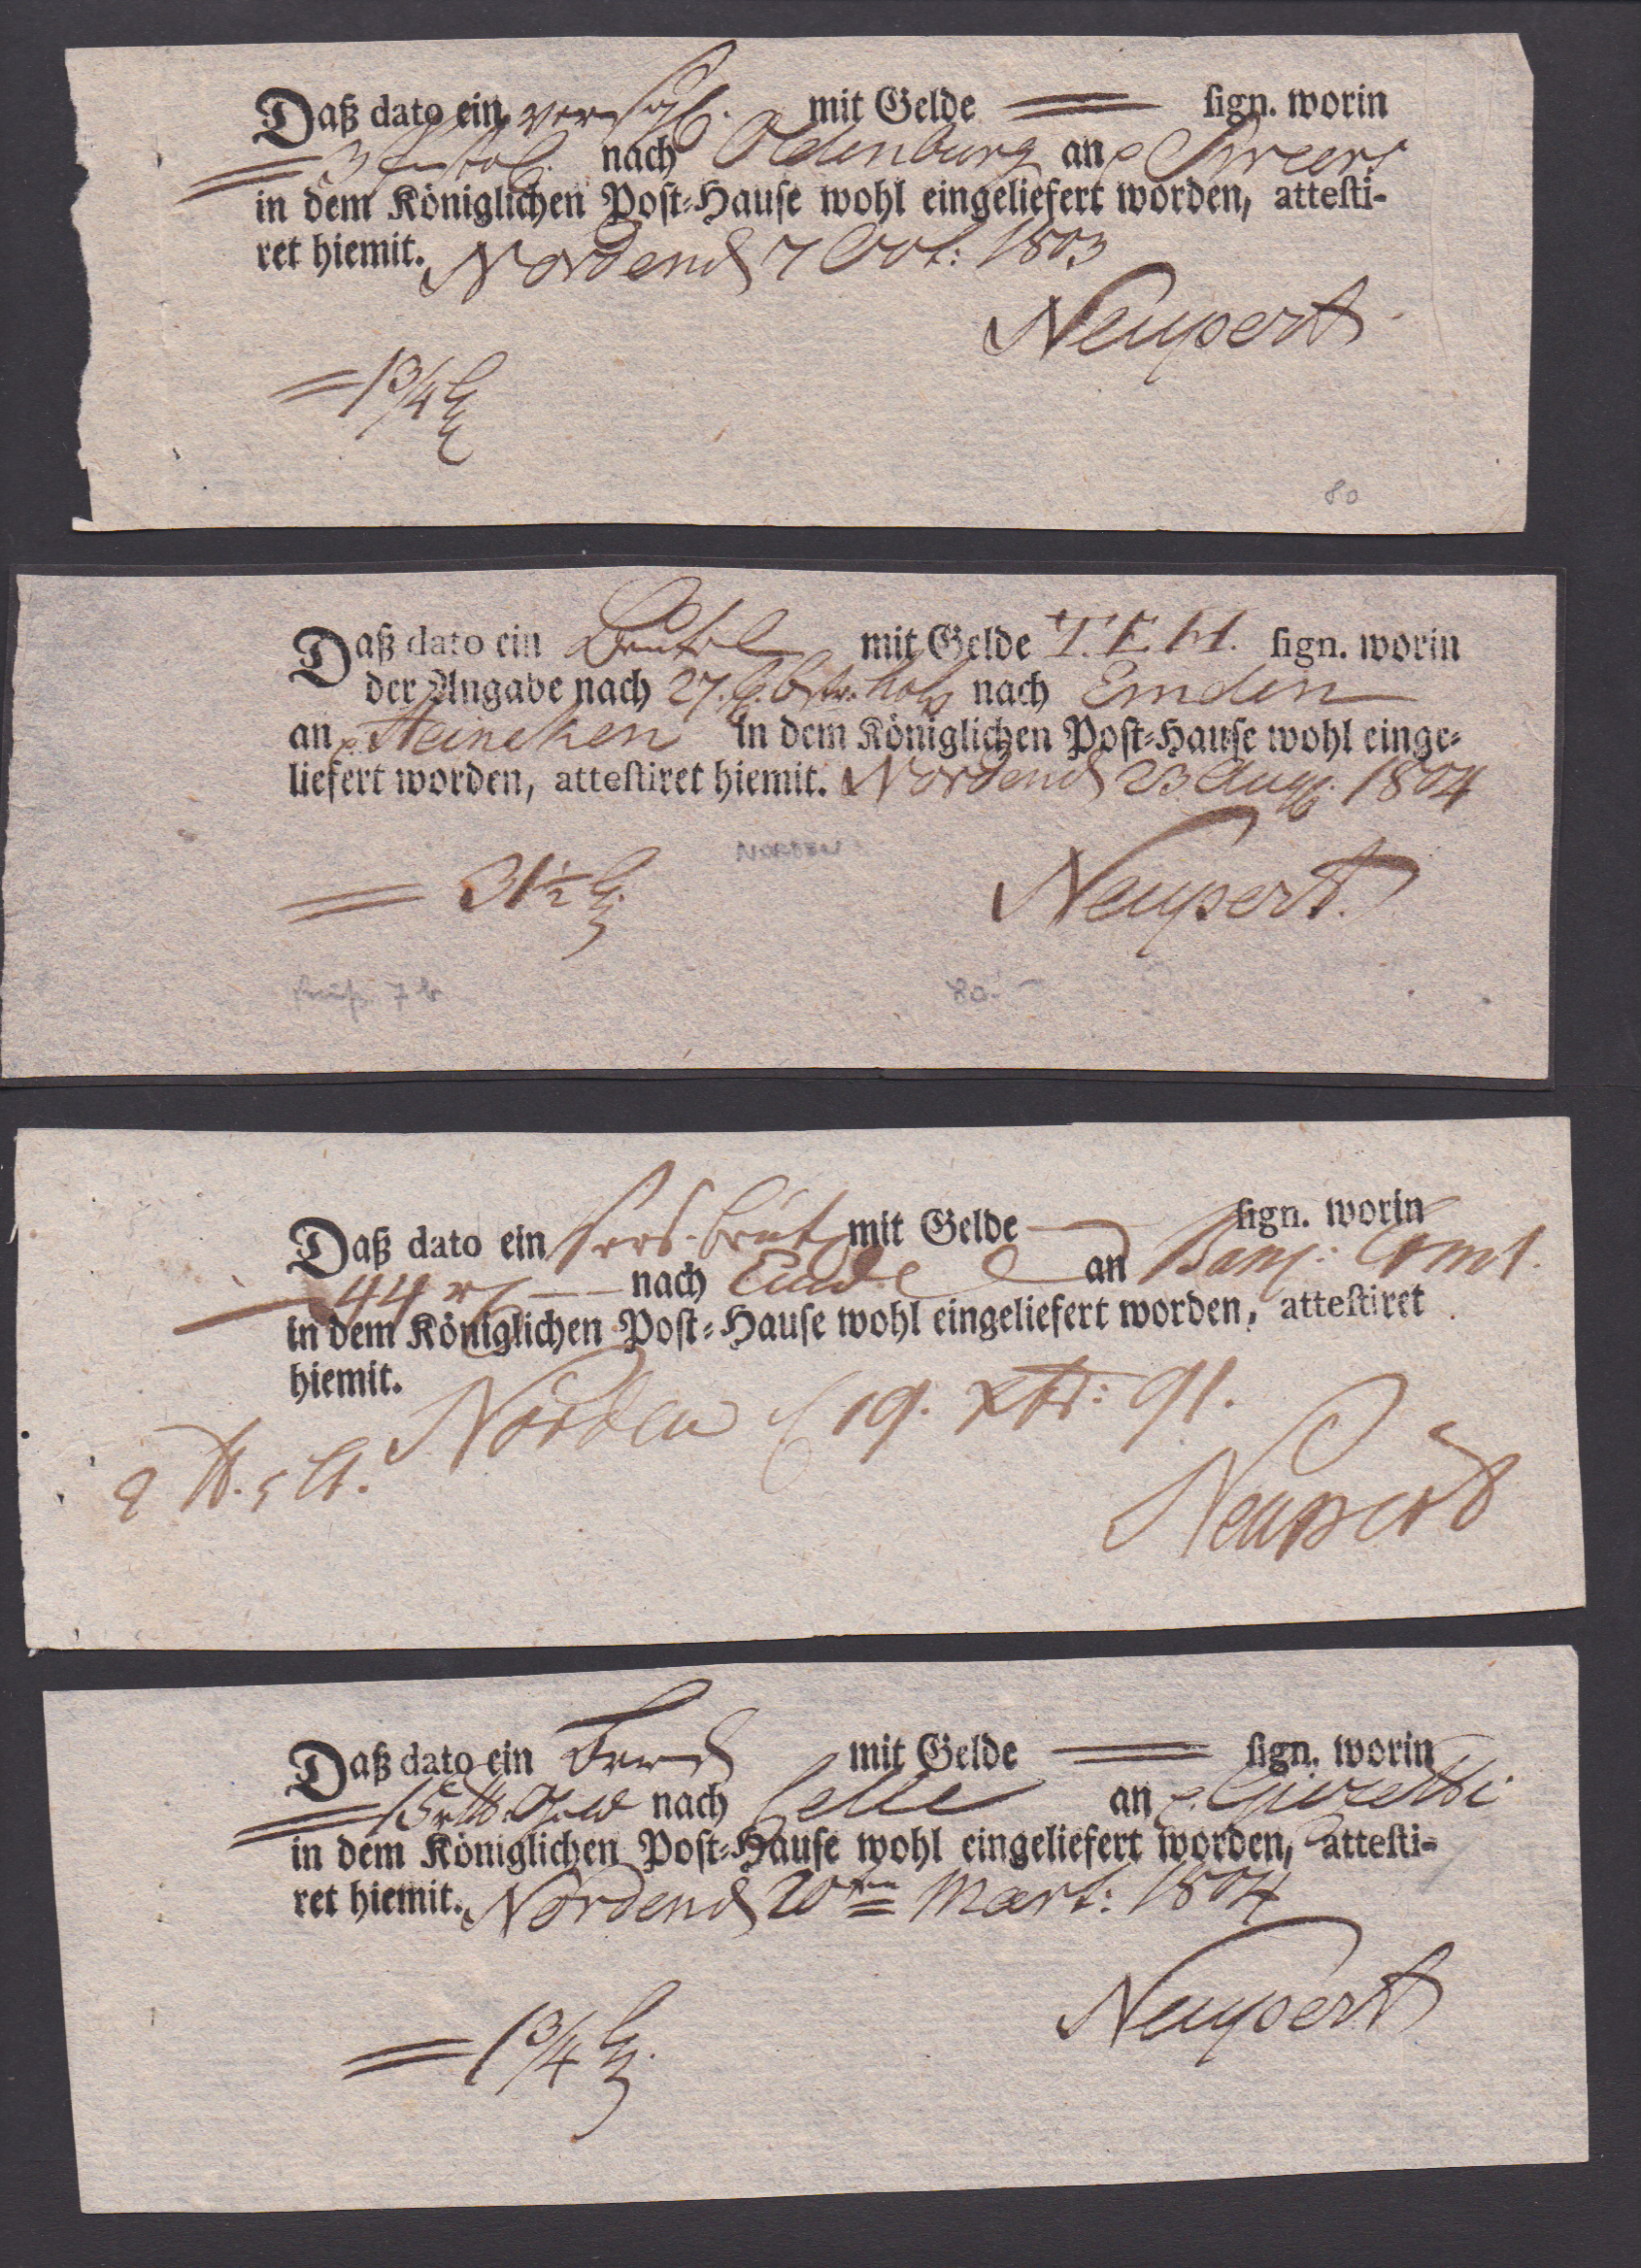 Daß dato ein mit Gelde sign. worin
3 nach Oldenburg an
in dem Königlichen Post-Hause wohl eingeliefert worden, attesti-
ret hiemit. Norden d 7 Oct: 1803
Neupert
1 3/4
80
Daß dato ein Beutel mit Gelde T.E.H. sign. worin
der Angabe nach 27. nach Emden
an Heineken in dem Königlichen Post-Hause wohl einge-
liefert worden, attestiret hiemit. Norden d 23 Aug. 1804
NORDEN
31 1/2
Neupert.
80.-
Daß dato ein mit Gelde sign. worin
44 nach an
in dem Königlichen Post-Hause wohl eingeliefert worden, attestiret
hiemit.
Norden d 19. Xbr: 91.
Neupert
Daß dato ein mit Gelde sign. worin
15 nach Celle an
in dem Königlichen Post-Hause wohl eingeliefert worden, attesti-
ret hiemit. Norden d 20ten Mart: 1804
Neupert
1 3/4